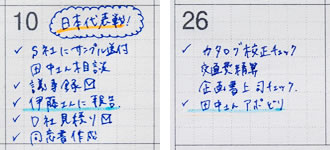 10
日本代表戦!
✓ S社にサンプル送付
田中さん相談
✓ 議事録☒
✓ 伊藤さんに報告
✓ D社見積り☒
✓ 同意書作成
26
✓ カタログ校正チェック
交通費精算
企画書上司チェック
✓ 田中さんアポどり